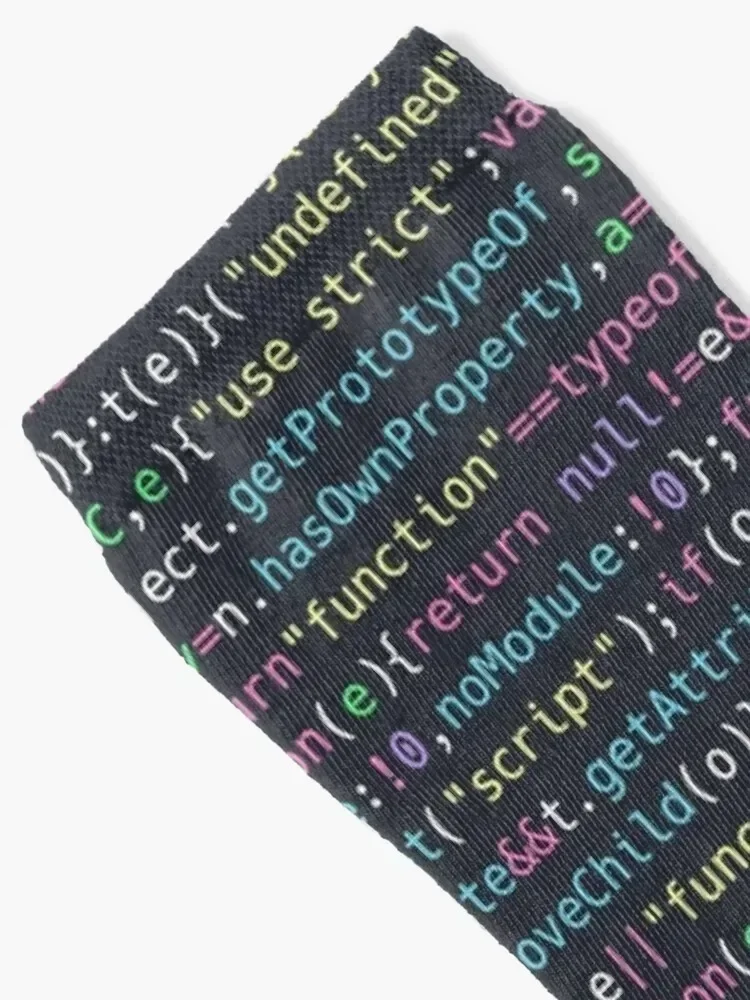 )}:t(e)}("undefined"
C,e){"use strict";va
ect.getPrototypeOf,s
y=n.hasOwnProperty,a=
urn"function"==typeof
on(e){return null!=e&
:!0,noModule:!0};f
t("script");if(o
te&&t.getAttri
oveChild(o)
e||"func
on(